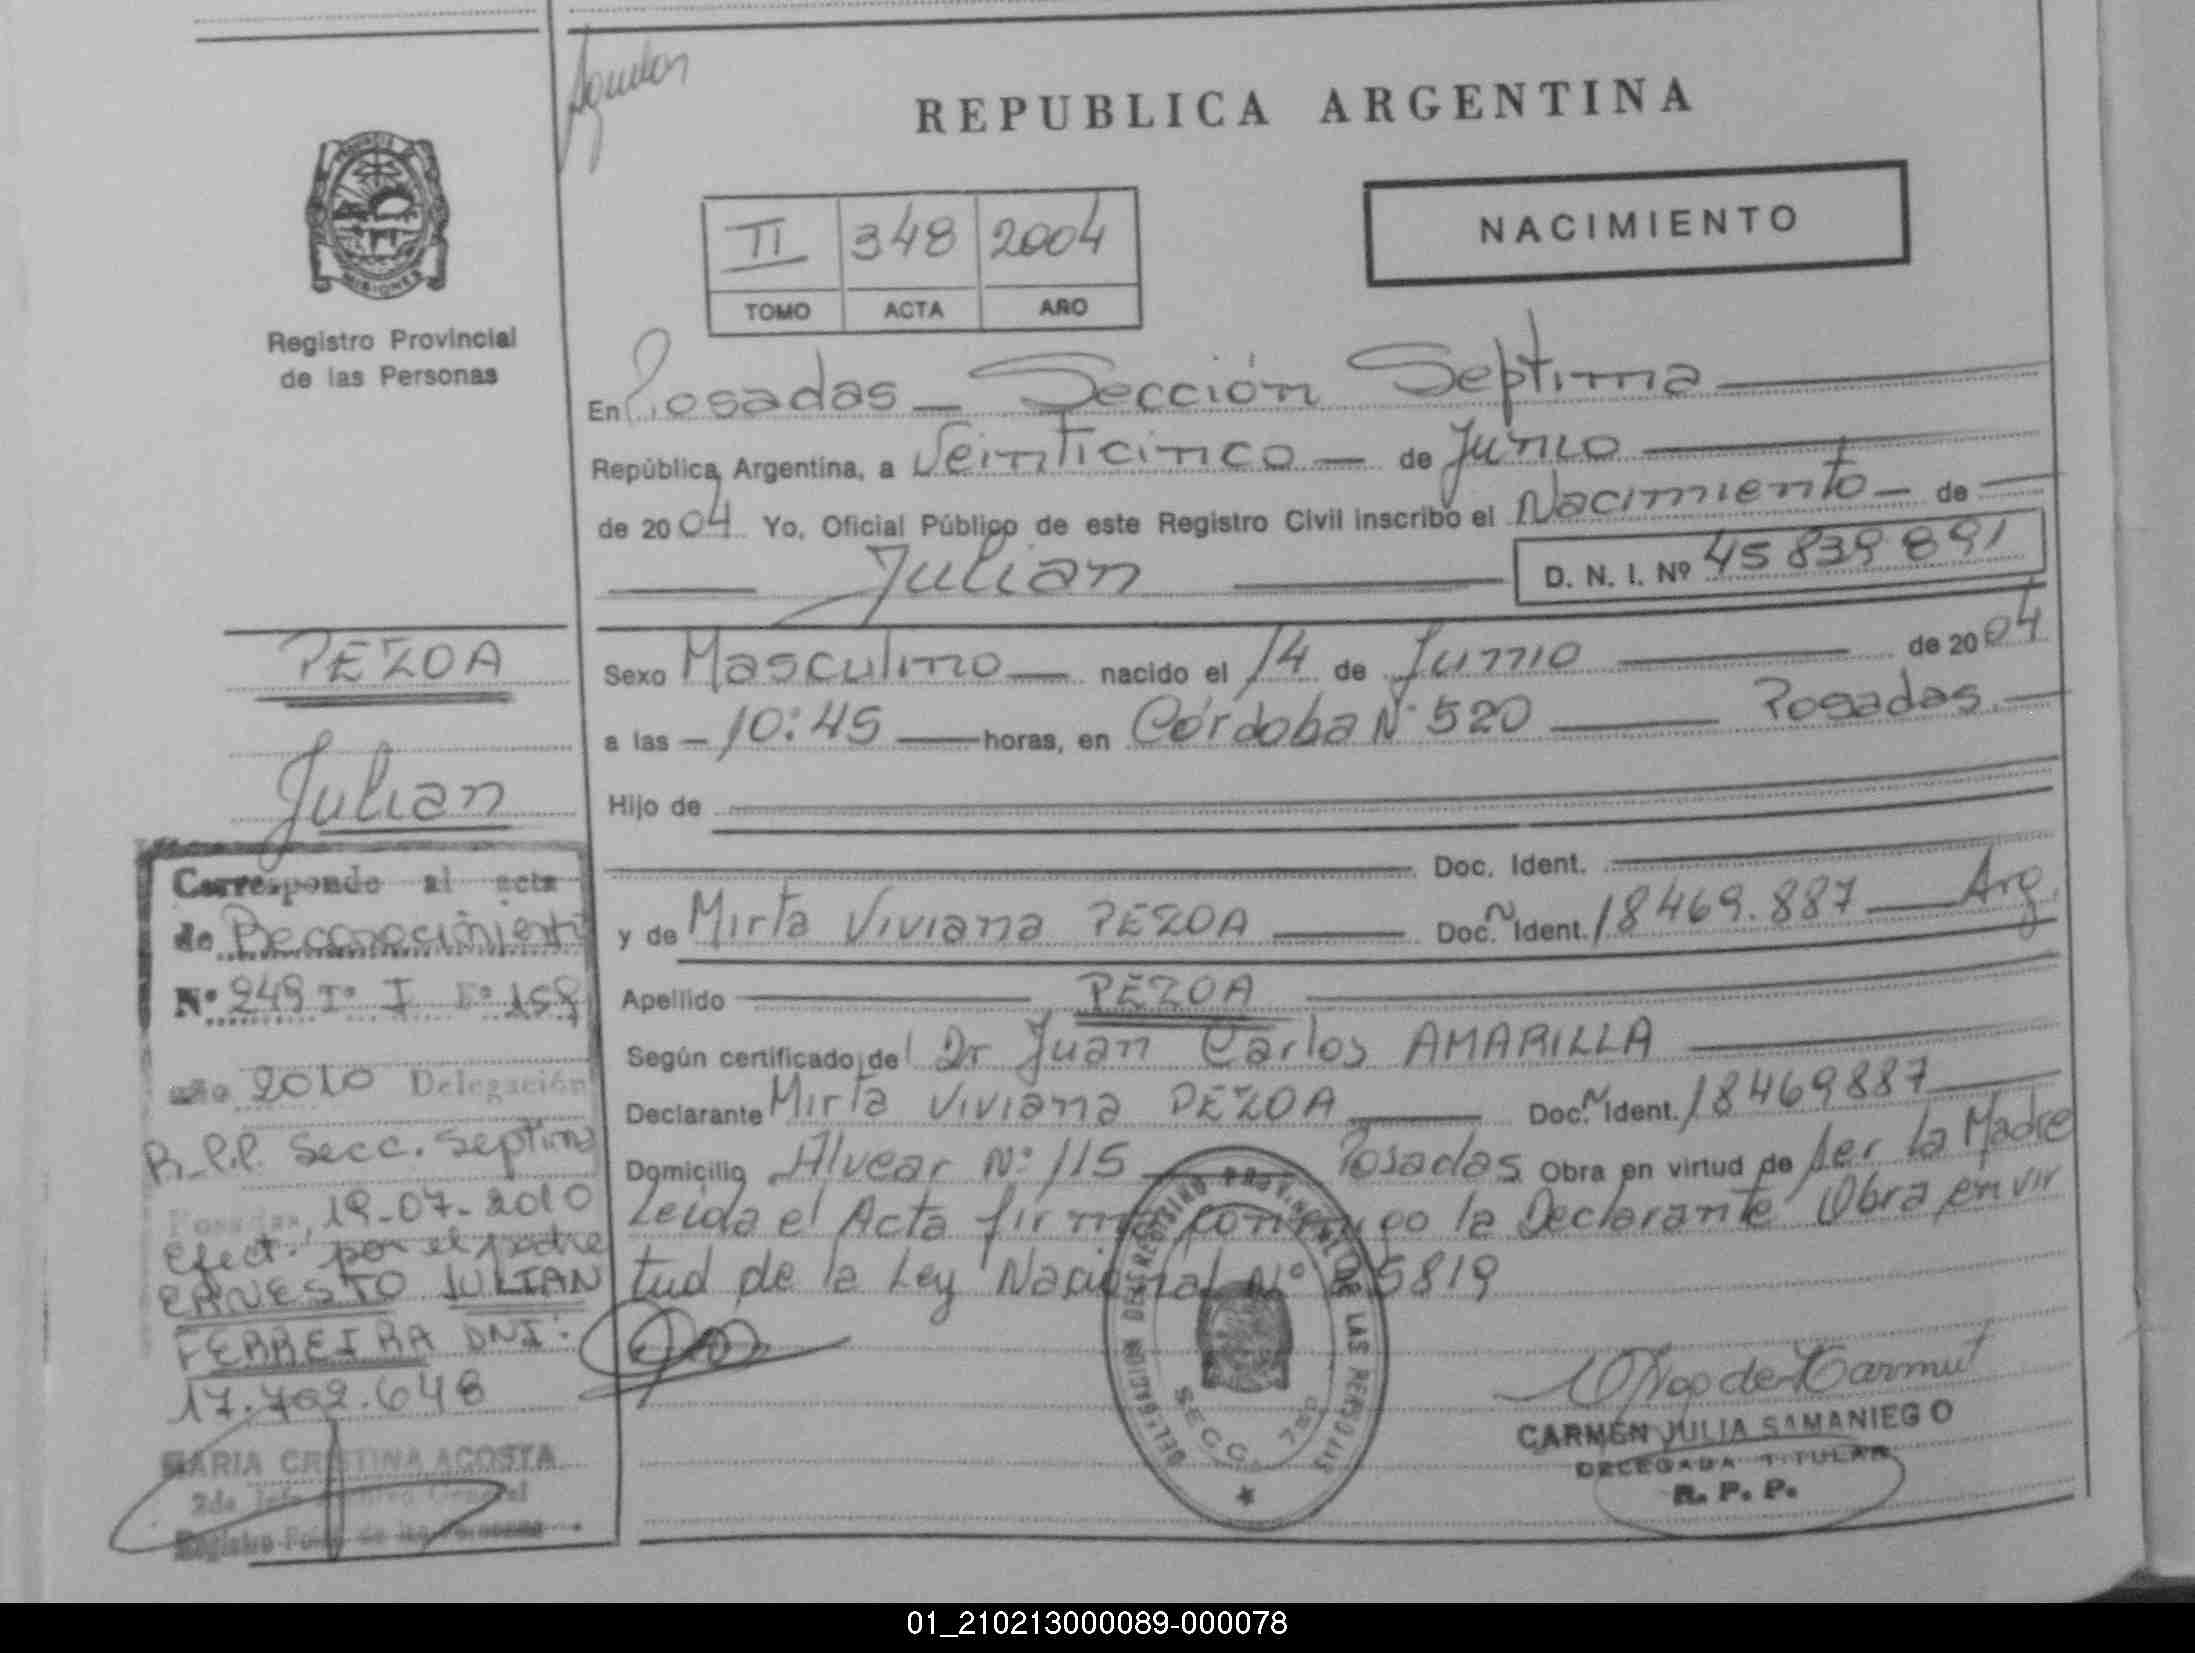 REPUBLICA ARGENTINA
MISIONES
Registro Provincial
de las Personas
NACIMIENTO
II 348 2004
TOMO ACTA AÑO
En Posadas - Sección Septima
República Argentina, a Veinticinco - de Junio
de 2004 Yo, Oficial Público de este Registro Civil inscribo el Nacimiento - de
Julian D. N. I. Nº 45 839 891
Sexo Masculino nacido el 14 de Junio de 2004
a las - 10:45 horas, en Córdoba Nº 520 Posadas.
Hijo de
Doc. Ident.
y de Mirta Viviana PEZOA Doc. Ident. 18469.887 Arg.
Apellido PEZOA
Según certificado del Dr Juan Carlos AMARILLA
Declarante Mirta Viviana PEZOA Doc. Ident. 18469887
Domicilio Alvear Nº 115 Posadas Obra en virtud de ser la Madre
Leida el Acta firma conmigo la Declarante Obra en vir
tud de la Ley Nacional Nº 25819
PEZOA
Julian
Corresponde al acta
de Reconocimiento
Nº 249 Tº I Fº 159
año 2010 Delegación
R.P.P. Secc. Septima
Posadas, 19-07-2010
Efect. por el padre
ERNESTO JULIAN
FERREIRA DNI:
17.702.648
MARIA CRISTINA ACOSTA
2da Jefe Archivo General
Registro Pcial de las Personas
DELEGACION DEL REGISTRO PROVINCIAL DE LAS PERSONAS
SECC. 7ma
CARMEN JULIA SAMANIEGO
DELEGADA TITULAR
R. P. P.
01_210213000089-000078